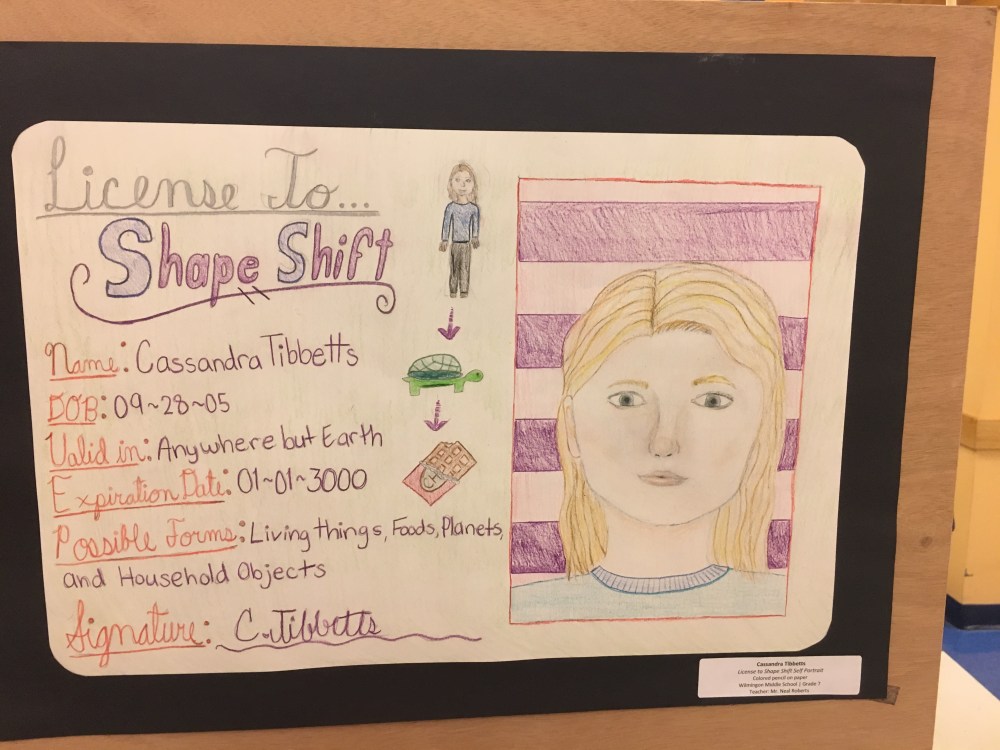 License To...
Shape Shift
Name: Cassandra Tibbetts
DOB: 09~28~05
Valid in: Anywhere but Earth
Expiration Date: 01~01~3000
Possible Forms: Living things, Foods, Planets,
and Household Objects
Signature: C. Tibbetts
Cassandra Tibbetts
License to Shape Shift Self Portrait
Colored pencil on paper
Wilmington Middle School | Grade 7
Teacher: Mr. Neal Roberts